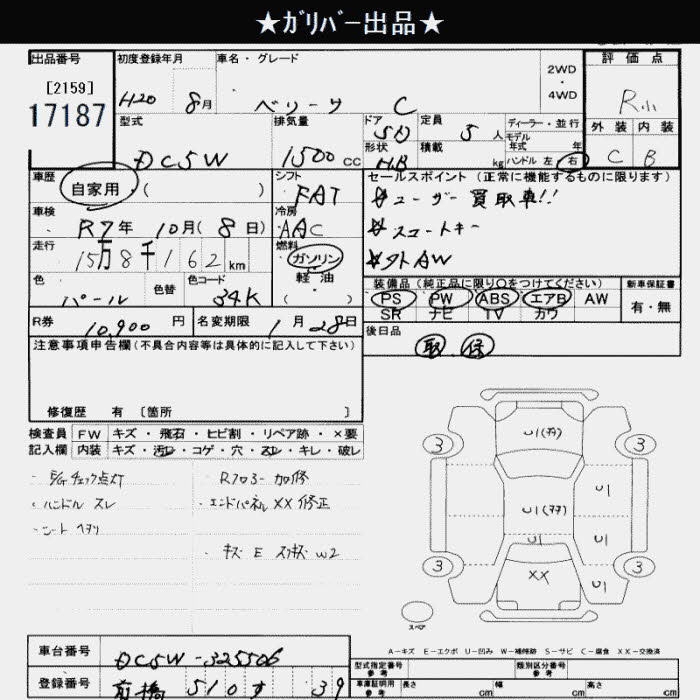 ★ガリバー出品★
出品番号
[2159]
17187
初度登録年月
H20 8月
車名・グレード
ベリーサ C
2WD
・
4WD
評価点
R小
外装 内装
C B
型式
DC5W
排気量
1500 cc
ドア
5D
定員
5 人
形状
H.B
積載
kg
ディーラー・並行
モデル
年式 年
ハンドル 左 右
車歴
自家用 ( )
シフト
FAT
セールスポイント (正常に機能するものに限ります)
ユーザー買取車!!
スマートキー
外AW
車検
R7年 10月(8日)
冷房
AAC
走行
15万8千162 km
燃料
ガソリン
軽・油
( )
色
パール
色替
色コード
34K
装備品 (純正品に限り○をつけてください)
PS PW ABS エアB AW
SR ナビ TV カワ
新車保証書
有・無
R券
10,900 円
名変期限
1月28日
後日品
取 保
注意事項申告欄(不具合内容等は具体的に記入して下さい)
修復歴 有 [箇所 ]
検査員
記入欄
FW キズ・飛石・ヒビ割・リペア跡・×要
内装 キズ・汚レ・コゲ・穴・スレ・キレ・破レ
・ハンドル スレ
・シート ヘタリ
・エンドパネル XX 修正
3
3
3
3
U1
U1
U1
U1
XX
スペア
A-キズ E-エクボ U-凹み W-補修跡 S-サビ C-腐食 XX-交換済
車台番号
DC5W-325506
登録番号
前橋 510 す 39
型式指定番号
参考
類別区分番号
参考
車庫証明用
参考
長さ cm 幅 cm 高さ cm